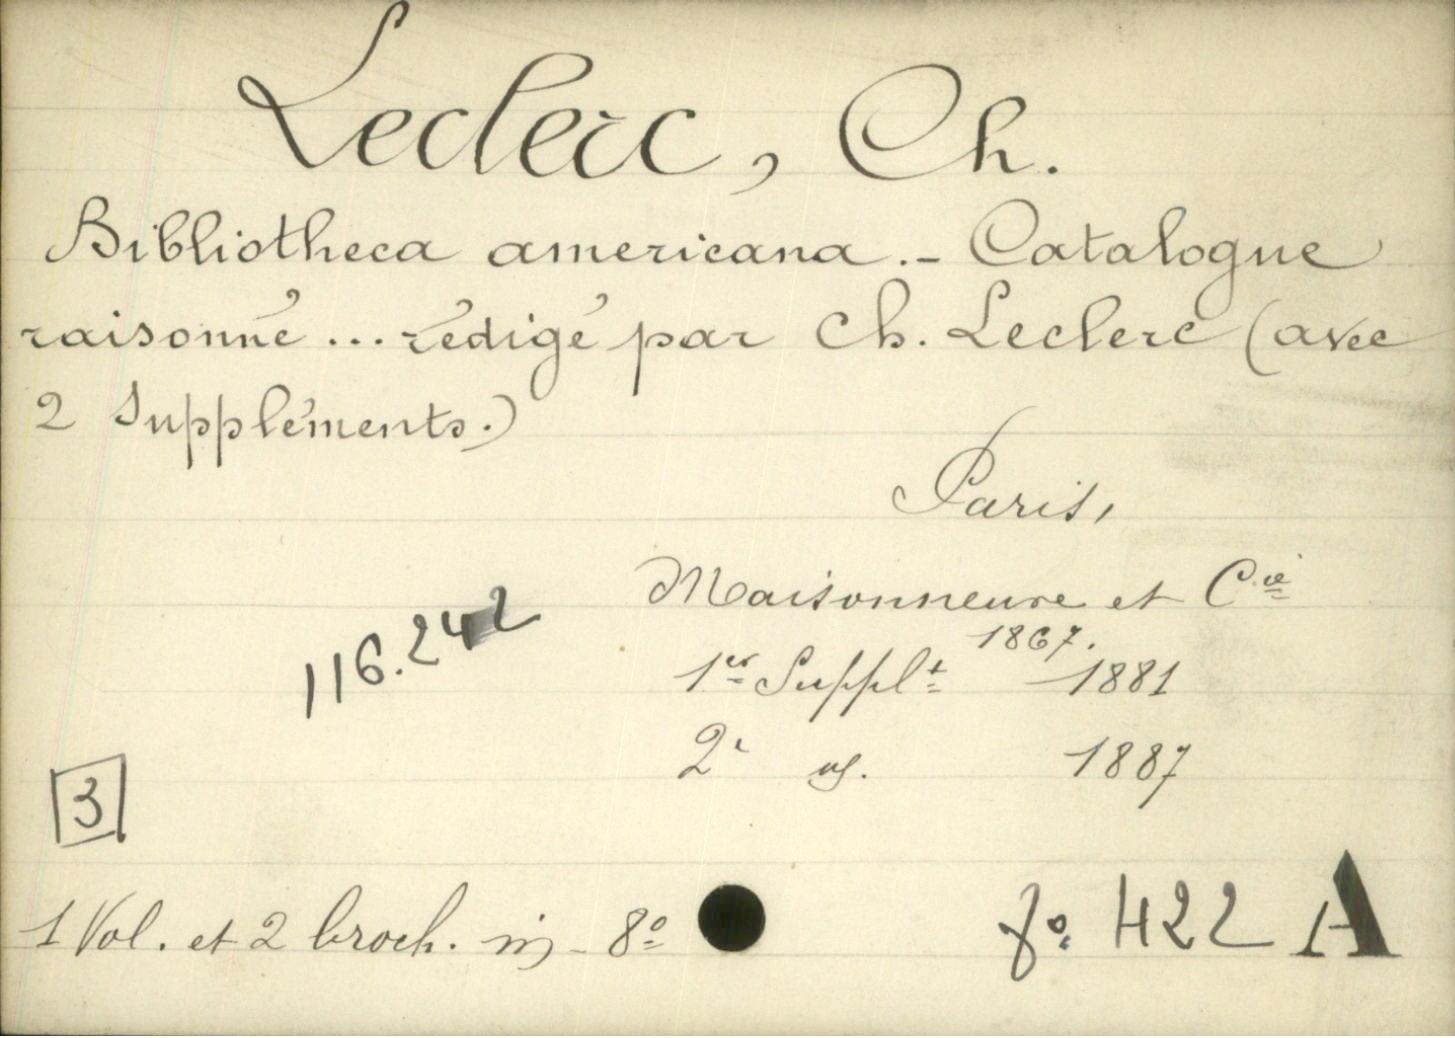 Leclerc, Ch.
Bibliotheca americana. - Catalogue
raisonné ... rédigé par Ch. Leclerc (avec
2 Suppléments.)
Paris,
Maisonneuve et Cie
1867.
1er Supplt 1881
2e 1887
116.242
3
1 Vol. et 2 broch. in-8º
8º 422 A